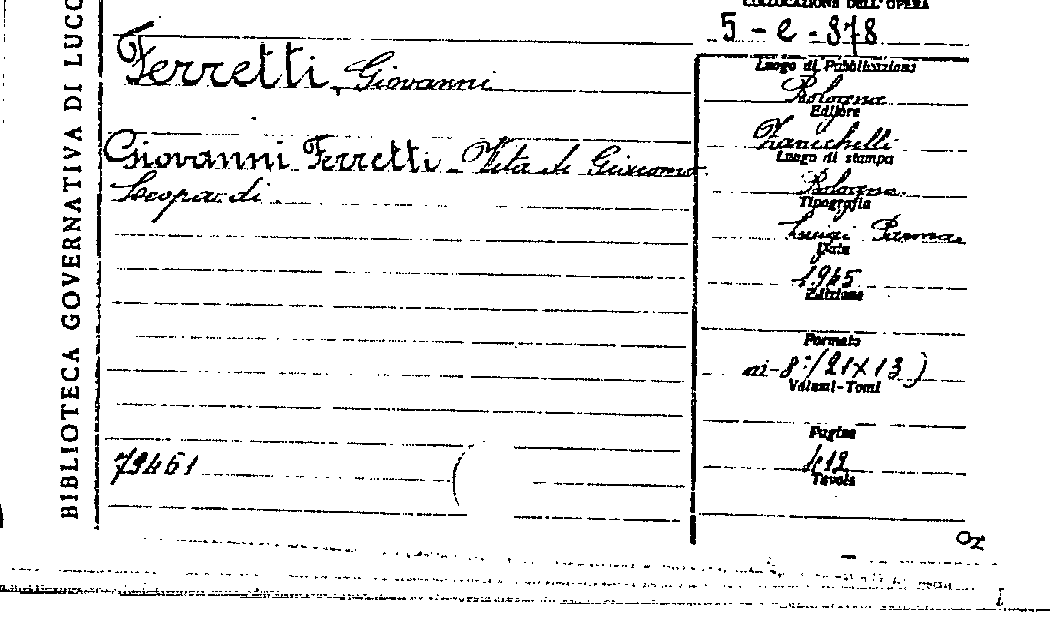 BIBLIOTECA GOVERNATIVA DI LUCC
COLLOCAZIONE DELL'OPERA
5-e-878
Ferretti, Giovanni
Luogo di Pubblicazione
Bologna
Editore
Zanichelli
Giovanni Ferretti - Vita di Giacomo
Leopardi.
Luogo di stampa
Bologna
Tipografia
Luigi Parma
Data
1945
Edizione
Formato
in-8°(21x13)
Volumi-Tomi
Pagine
412
Tavole
79461